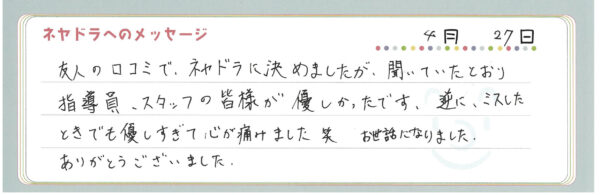 ネヤドラへのメッセージ
4月 27日
友人の口コミで、ネヤドラに決めましたが、聞いていたとおり
指導員、スタッフの皆様が優しかったです。逆に、ミスした
ときでも優しすぎて心が痛みました 笑 お世話になりました。
ありがとうございました。